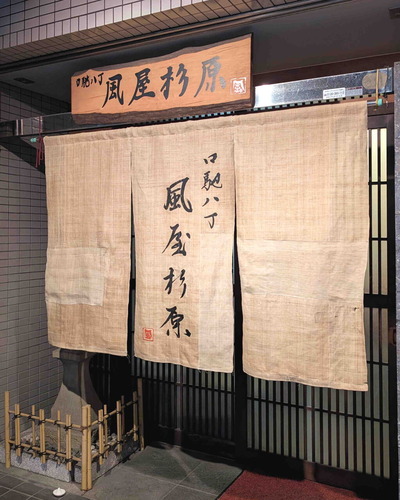 口馳八丁 風屋杉原
口馳八丁
風屋杉原